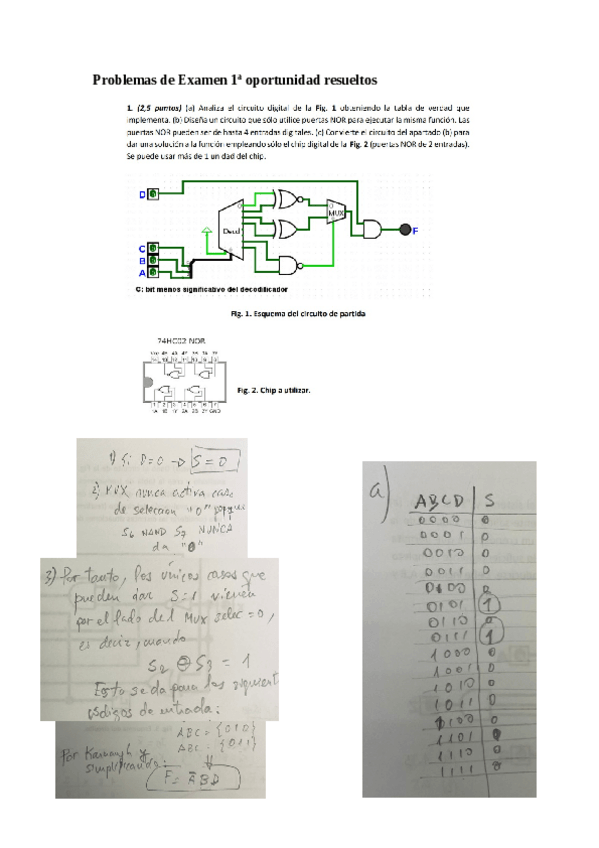 Problemas de Examen 1ª oportunidad resueltos
1. (2,5 puntos) (a) Analiza el circuito digital de la Fig. 1 obteniendo la tabla de verdad que
implementa. (b) Diseña un circuito que sólo utilice puertas NOR para ejecutar la misma función. Las
puertas NOR pueden ser de hasta 4 entradas digitales. (c) Convierte el circuito del apartado (b) para
dar una solución a la función empleando sólo el chip digital de la Fig. 2 (puertas NOR de 2 entradas).
Se puede usar más de 1 unidad del chip.
D
C
B
A
Decd
MUX
F
C: bit menos significativo del decodificador
Fig. 1. Esquema del circuito de partida
74HC02 NOR
1A 1B 1Y 2A 2B 2Y GND
Fig. 2. Chip a utilizar.
1) Si D=0 → S=0
2) MUX nunca activa caso
de seleccion "0" porque
S6 NAND S7 NUNCA
da "0"
3) Por tanto, los únicos casos que
pueden dar S=1 vienen
por el lado del MUX selec=0,
es decir, cuando
S2 ⊕ S3 = 1
Esto se da para los siguient
códigos de entrada:
ABC = {010}
ABC = {011}
Por Karnaugh y
simplificando:
F = ĀBD
a)
ABCD S
0000 0
0001 0
0010 0
0011 0
0100 0
0101 1
0110 0
0111 1
1000 0
1001 0
1010 0
1011 0
1100 0
1101 0
1110 0
1111 0